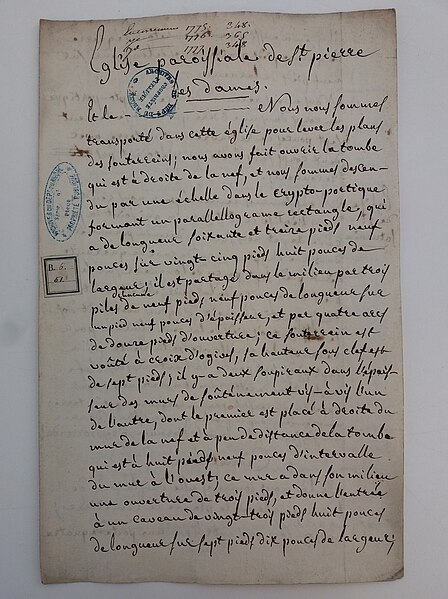 1775. 348.
1776. 365
1777. 348
Eglise paroissiale de St pierre
es dames.
Et le Nous nous sommes
transporté dans cette église pour lever les plans
des souterreins; nous avons fait ouvrir la tombe
qui est à droite de la nef, et nous sommes descen-
du par une échelle dans le crypto-portique
formant un parallellograme rectangle, qui
a de longueur soixante et treize pieds neuf
pouces sur vingt cinq pieds huit pouces de
largeur; il est partagé dans le milieu par trois
piles de neuf pieds neuf pouces de longueur sur
un pied neuf pouces d'épaisseur, et par quatre arcs
de douze pieds d'ouverture; ce souterrein est
voûté à croix d'ogives, sa hauteur sous clef est
de sept pieds; il y a deux soupiraux dans l'épais-
seur des murs de soûtènement vis-à-vis l'un
de l'autre, dont le premier est placé à droite du
mur de la nef et à peu de distance de la tombe
qui est à huit pieds neuf pouces d'intervalle
du mur à l'ouest; ce mur a dans son milieu
une ouverture de trois pieds, et donne l'entrée
à un caveau de vingt-trois pieds huit pouces
de longueur sur sept pieds dix pouces de largeur;
B. 6.
61.